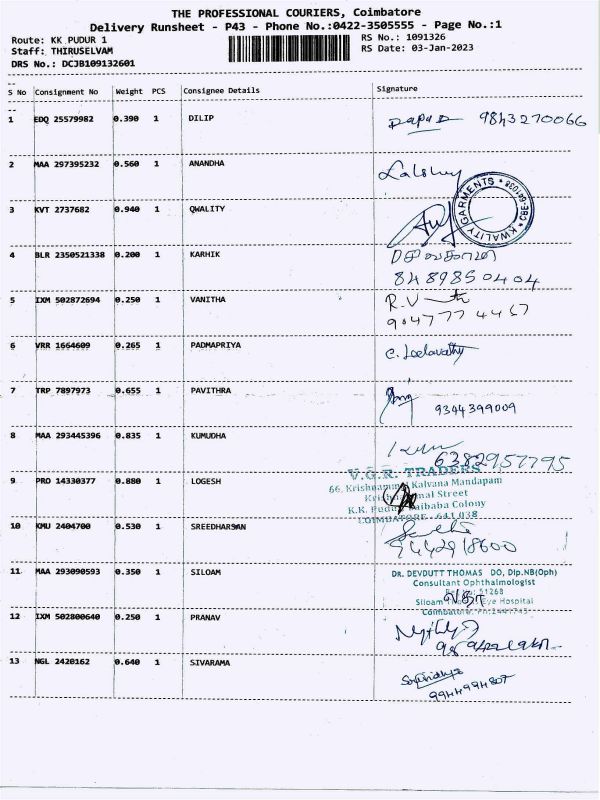 THE PROFESSIONAL COURIERS, Coimbatore
Delivery Runsheet - P43 - Phone No.:0422-3505555 - Page No.:1
Route: KK PUDUR 1 RS No.: 1091326
Staff: THIRUSELVAM RS Date: 03-Jan-2023
DRS No.: DCJB109132601
S No Consignment No Weight PCS Consignee Details Signature
1 EDQ 25579982 0.390 1 DILIP 9843270066
2 MAA 297395232 0.560 1 ANANDHA
KWALITY GARMENTS * CBE-641038 *
3 KVT 2737682 0.940 1 QWALITY
4 BLR 2350521338 0.200 1 KARHIK
8489850404
5 IXM 502872694 0.250 1 VANITHA R.V
9047774467
6 VRR 1664609 0.265 1 PADMAPRIYA C. Leelavathy
7 TRP 7897973 0.655 1 PAVITHRA
9344399009
8 MAA 293445396 0.835 1 KUMUDHA
6382957795
V.G.R. TRADERS
9 PRO 14330377 0.880 1 LOGESH 66, Krishnammal Kalyana Mandapam
Street
K.K. Pudur, Saibaba Colony
COIMBATORE - 641 038
10 KMU 2404700 0.530 1 SREEDHARSAN
9442918600
11 MAA 293090593 0.350 1 SILOAM DR. DEVDUTT THOMAS DO, Dip.NB(Oph)
Consultant Ophthalmologist
51268
Siloam Eye Hospital
Coimbatore
12 IXM 502800640 0.250 1 PRANAV
13 NGL 2420162 0.640 1 SIVARAMA
9944994807